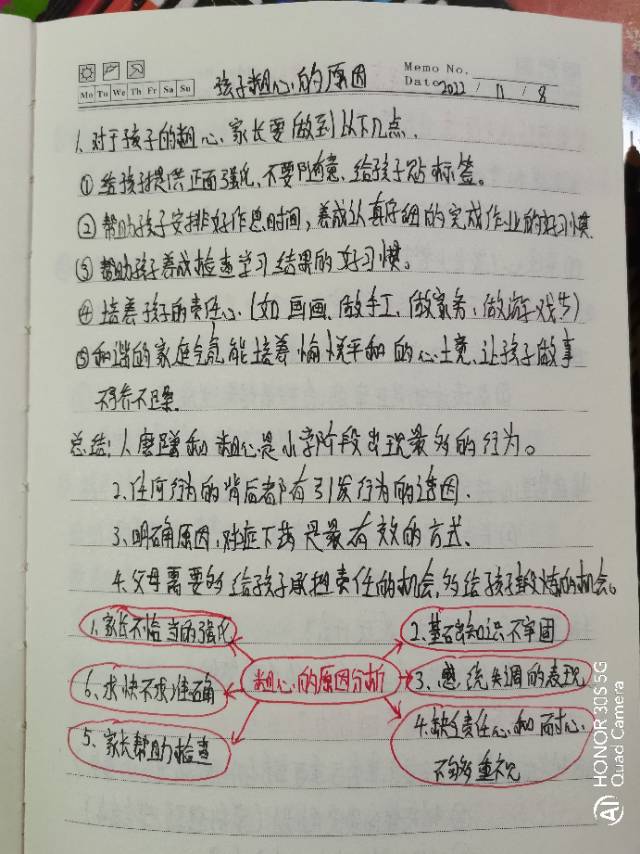 Memo No.
Mo Tu We Th Fr Sa Su
孩子粗心的原因
Date 2022 / 11 / 8
1、对于孩子的粗心、家长要做到以下几点.
①给孩子提供正面强化、不要随意、给孩子贴标签。
②帮助孩子安排好作息时间,养成认真仔细的完成作业的好习惯.
③帮助孩子养成检查学习结果的好习惯。
④培养孩子的责任心.(如画画、做手工、做家务、做游戏等)
⑤和谐的家庭气氛能培养愉悦平和的心境、让孩子做事
不骄不躁.
总结:1、磨蹭和粗心是小学阶段出现最多的行为。
2、任何行为的背后都有引发行为的原因.
3、明确原因,对症下药是最有效的方式、
4、父母需要多给孩子承担责任的机会,多给孩子锻炼的机会。
1、家长不恰当的强化
2、基础知识不牢固
粗心的原因分析
6、求快不求准确
3、感统失调的表现
5、家长帮助检查
4、缺乏责任心和耐心、
不够重视
HONOR 30S 5G
AI Quad Camera